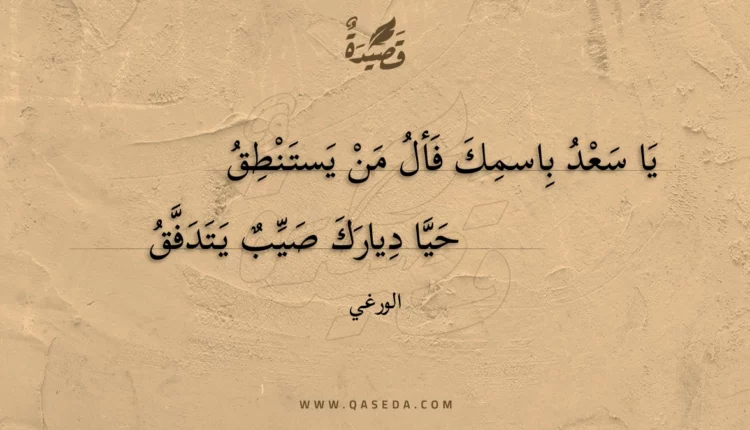 قَصِيْدَةٌ
يَا سَعْدُ بِاسمِكَ فَألُ مَنْ يَستَنْطِقُ
حَيَّا دِيارَكَ صَيِّبٌ يَتَدَفَّقُ
الورغي
WWW.QASEDA.COM